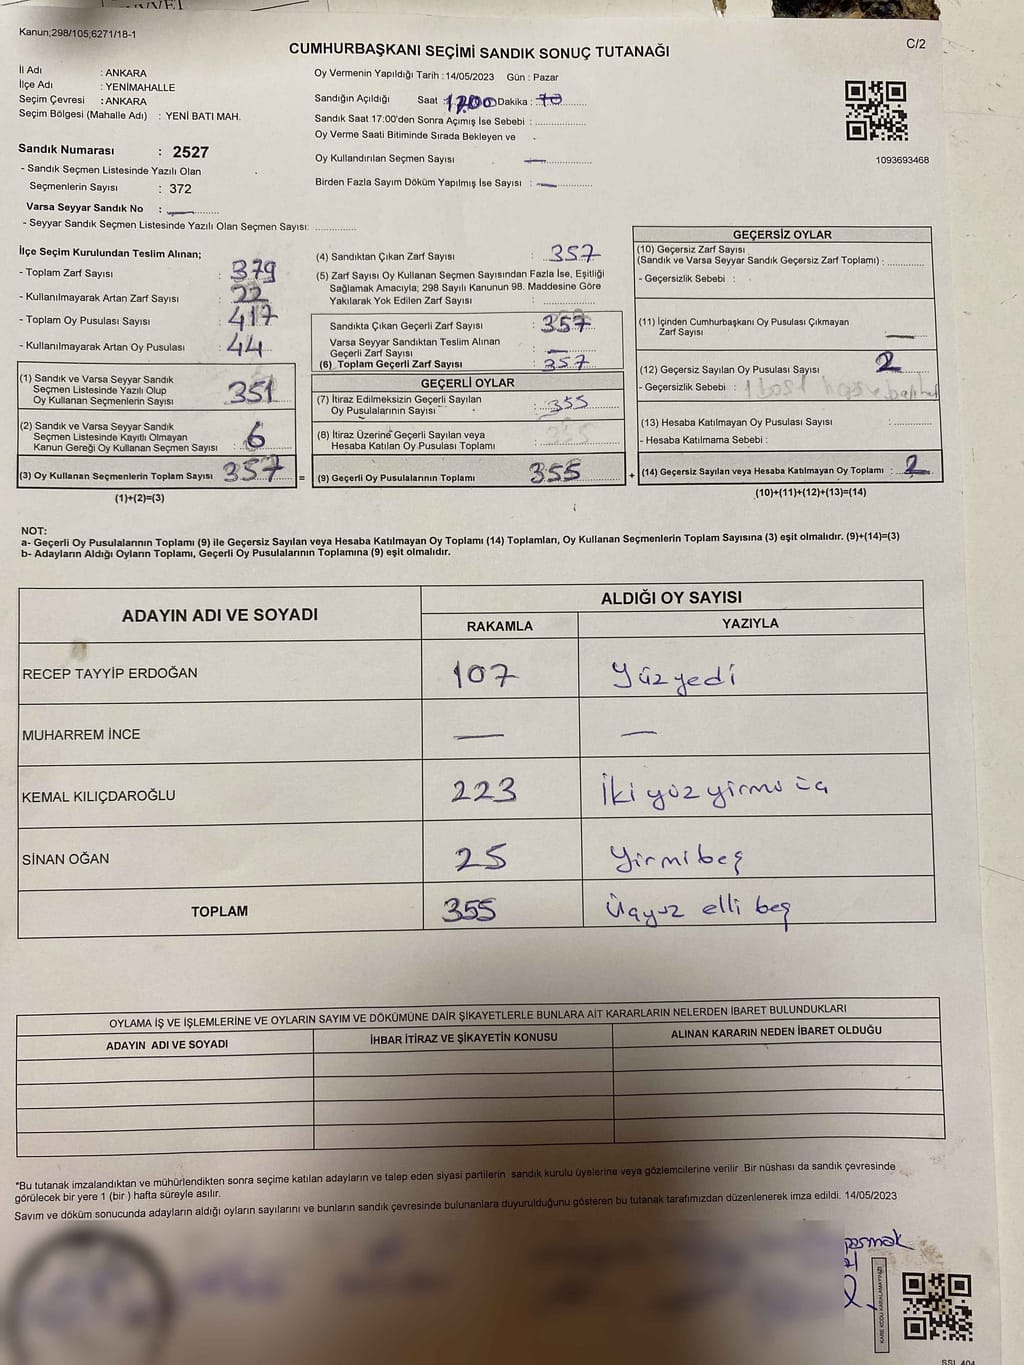 Kanun;298/105;6271/18-1
C/2
CUMHURBAŞKANI SEÇİMİ SANDIK SONUÇ TUTANAĞI
İl Adı : ANKARA
İlçe Adı : YENİMAHALLE
Seçim Çevresi : ANKARA
Seçim Bölgesi (Mahalle Adı) : YENİ BATI MAH.
Sandık Numarası : 2527
- Sandık Seçmen Listesinde Yazılı Olan
Seçmenlerin Sayısı : 372
Varsa Seyyar Sandık No : —
- Seyyar Sandık Seçmen Listesinde Yazılı Olan Seçmen Sayısı: ..............
Oy Vermenin Yapıldığı Tarih : 14/05/2023 Gün : Pazar
Sandığın Açıldığı Saat : 17.00 Dakika :
Sandık Saat 17:00'den Sonra Açımış İse Sebebi : ..............
Oy Verme Saati Bitiminde Sırada Bekleyen ve
Oy Kullandırılan Seçmen Sayısı —
Birden Fazla Sayım Döküm Yapılmış İse Sayısı : —
1093693468
İlçe Seçim Kurulundan Teslim Alınan;
- Toplam Zarf Sayısı : 379
- Kullanılmayarak Artan Zarf Sayısı : 22
- Toplam Oy Pusulası Sayısı : 417
- Kullanılmayarak Artan Oy Pusulası : 44
(1) Sandık ve Varsa Seyyar Sandık
Seçmen Listesinde Yazılı Olup
Oy Kullanan Seçmenlerin Sayısı : 351
(2) Sandık ve Varsa Seyyar Sandık
Seçmen Listesinde Kayıtlı Olmayan
Kanun Gereği Oy Kullanan Seçmen Sayısı : 6
(3) Oy Kullanan Seçmenlerin Toplam Sayısı : 357 =
(1)+(2)=(3)
(4) Sandıktan Çıkan Zarf Sayısı : 357
(5) Zarf Sayısı Oy Kullanan Seçmen Sayısından Fazla İse, Eşitliği
Sağlamak Amacıyla; 298 Sayılı Kanunun 98. Maddesine Göre
Yakılarak Yok Edilen Zarf Sayısı : ..............
Sandıkta Çıkan Geçerli Zarf Sayısı : 357
Varsa Seyyar Sandıktan Teslim Alınan
Geçerli Zarf Sayısı : —
(6) Toplam Geçerli Zarf Sayısı : 357
GEÇERLİ OYLAR
(7) İtiraz Edilmeksizin Geçerli Sayılan
Oy Pusulalarının Sayısı : 355
(8) İtiraz Üzerine Geçerli Sayılan veya
Hesaba Katılan Oy Pusulası Toplamı :
(9) Geçerli Oy Pusulalarının Toplamı : 355 +
GEÇERSİZ OYLAR
(10) Geçersiz Zarf Sayısı
(Sandık ve Varsa Seyyar Sandık Geçersiz Zarf Toplamı) : ............
- Geçersizlik Sebebi :
(11) İçinden Cumhurbaşkanı Oy Pusulası Çıkmayan
Zarf Sayısı —
(12) Geçersiz Sayılan Oy Pusulası Sayısı : 2
- Geçersizlik Sebebi :
(13) Hesaba Katılmayan Oy Pusulası Sayısı : ............
- Hesaba Katılmama Sebebi :
(14) Geçersiz Sayılan veya Hesaba Katılmayan Oy Toplamı : 2
(10)+(11)+(12)+(13)=(14)
NOT:
a- Geçerli Oy Pusulalarının Toplamı (9) ile Geçersiz Sayılan veya Hesaba Katılmayan Oy Toplamı (14) Toplamları, Oy Kullanan Seçmenlerin Toplam Sayısına (3) eşit olmalıdır. (9)+(14)=(3)
b- Adayların Aldığı Oyların Toplamı, Geçerli Oy Pusulalarının Toplamına (9) eşit olmalıdır.
ADAYIN ADI VE SOYADI
ALDIĞI OY SAYISI
RAKAMLA YAZIYLA
RECEP TAYYİP ERDOĞAN 107 Yüzyedi
MUHARREM İNCE — —
KEMAL KILIÇDAROĞLU 223 İkiyüzyirmi üç
SİNAN OĞAN 25 Yirmibeş
TOPLAM 355 Üçyüz elli beş
OYLAMA İŞ VE İŞLEMLERİNE VE OYLARIN SAYIM VE DÖKÜMÜNE DAİR ŞİKAYETLERLE BUNLARA AİT KARARLARIN NELERDEN İBARET BULUNDUKLARI
ADAYIN ADI VE SOYADI İHBAR İTİRAZ VE ŞİKAYETİN KONUSU ALINAN KARARIN NEDEN İBARET OLDUĞU
*Bu tutanak imzalandıktan ve mühürlendikten sonra seçime katılan adayların ve talep eden siyasi partilerin sandık kurulu üyelerine veya gözlemcilerine verilir .Bir nüshası da sandık çevresinde
görülecek bir yere 1 (bir ) hafta süreyle asılır.
Sayım ve döküm sonucunda adayların aldığı oyların sayılarını ve bunların sandık çevresinde bulunanlara duyurulduğunu gösteren bu tutanak tarafımızdan düzenlenerek imza edildi. 14/05/2023
KARE KODU KARALAMAYINIZ!